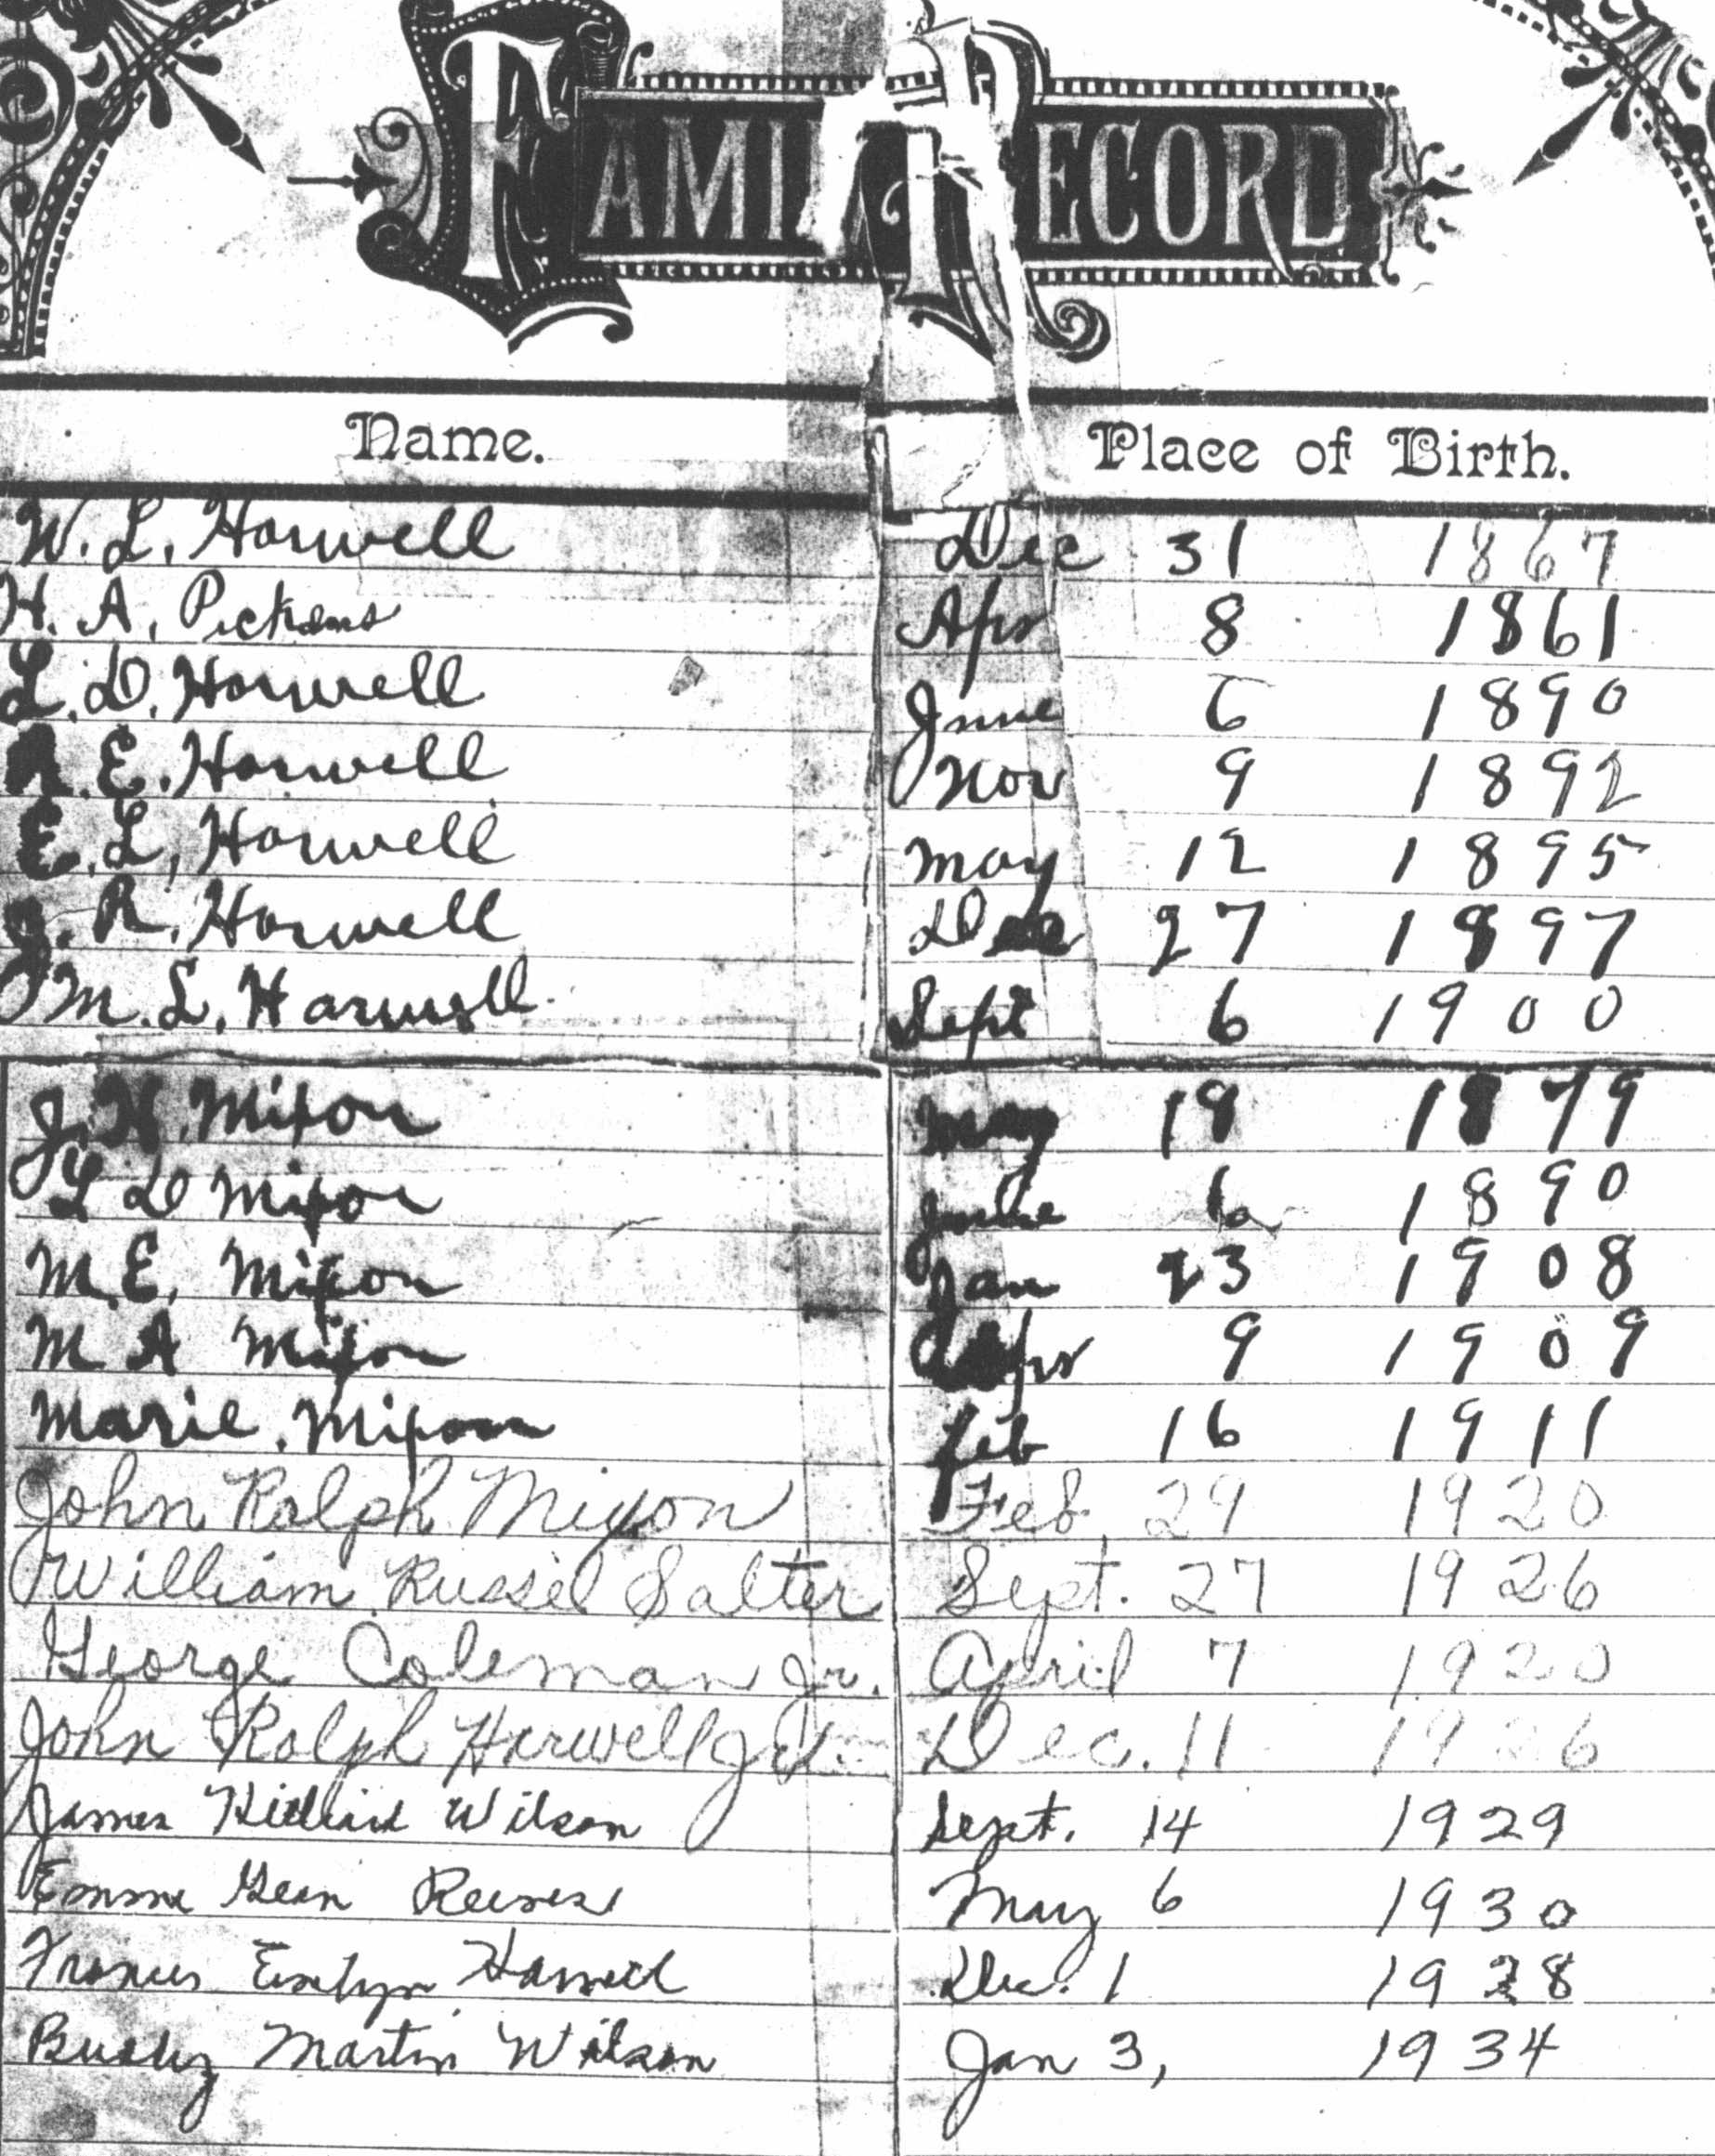 FAMILY RECORD
Name. Place of Birth.
W. L. Harwell Dec 31 1867
H. A. Pickens Apr 8 1861
L. D. Harwell June 6 1890
A. E. Harwell Nov 9 1892
E. L. Harwell May 12 1895
J. R. Harwell Dec 27 1897
M. L. Harwell Sept 6 1900
J. H. Mixon May 18 1879
L D Mixon June 6 1890
M. E. Mixon Jan 23 1908
M A Mixon Apr 9 1909
Marie Mixon Feb 16 1911
John Ralph Mixon Feb. 29 1920
William Russel Salter Sept. 27 1926
George Coleman Jr. April 7 1920
John Ralph Harwell Jr. Dec. 11 1926
James Wilson Sept. 14 1929
Emma Gean Reeves May 6 1930
Frances Evelyn Harwell Dec. 1 1928
Martin Wilson Jan 3, 1934